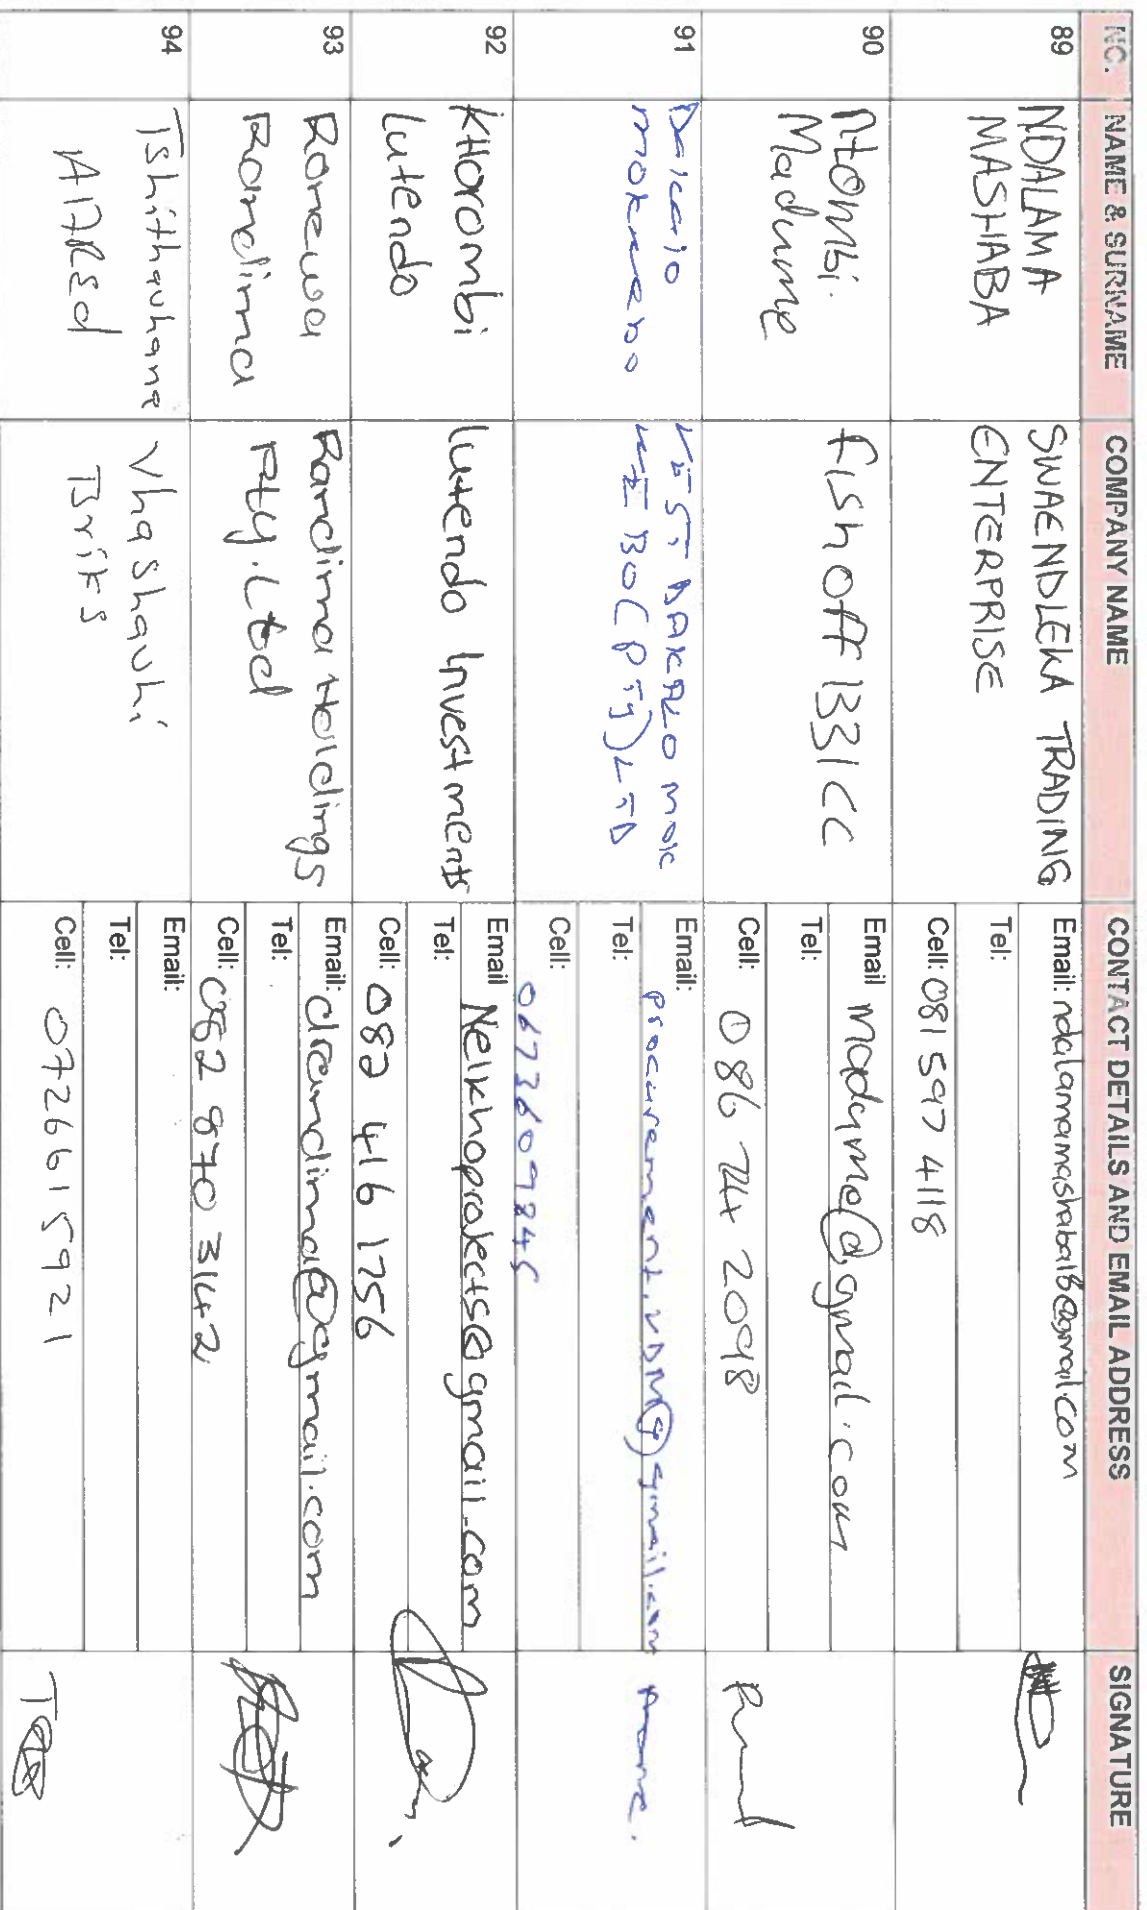 NO. NAME & SURNAME COMPANY NAME CONTACT DETAILS AND EMAIL ADDRESS SIGNATURE
89
NDALAMA
MASHABA
SWAENDLEKA TRADING
ENTERPRISE
Email: ndalamamashaba18@gmail.com
Tel:
Cell: 081 597 4118
90
Ntombi
Madume
fishoff 1331 CC
Email madume@gmail.com
Tel:
Cell: 086 74 2098
91
MOKWEBO
(PTY) LTD
Email: procurement.vDM@gmail.com
Tel:
Cell:
0673609845
92
KHorombi
Lutendo
Lutendo Investments
Email Nelkhoprojects@gmail.com
Tel:
Cell: 082 416 1756
93
Ronewa
Ramdima
Ramdima Holdings
Pty.Ltd
Email: dramdima@gmail.com
Tel:
Cell: 082 870 3142
94
Tshithauhana
Alfred
Vhashavhi
Briks
Email:
Tel:
Cell: 0726615921